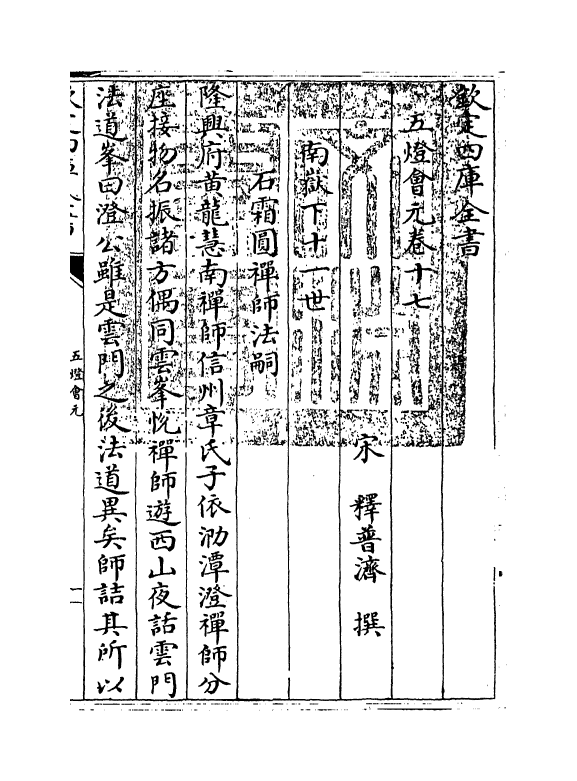 欽定四庫全書
五燈會元卷十七
宋　釋普濟　撰
南嶽下十一世
石霜圓禪師法嗣
隆興府黄龍慧南禪師信州章氏子依泐潭澄禪師分
座接物名振諸方偶同雲峯悦禪師遊西山夜話雲門
法道峯曰澄公雖是雲門之後法道異矣師詰其所以
五燈會元
一